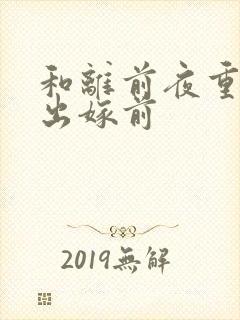 和離前夜重
出嫁前
2019無解